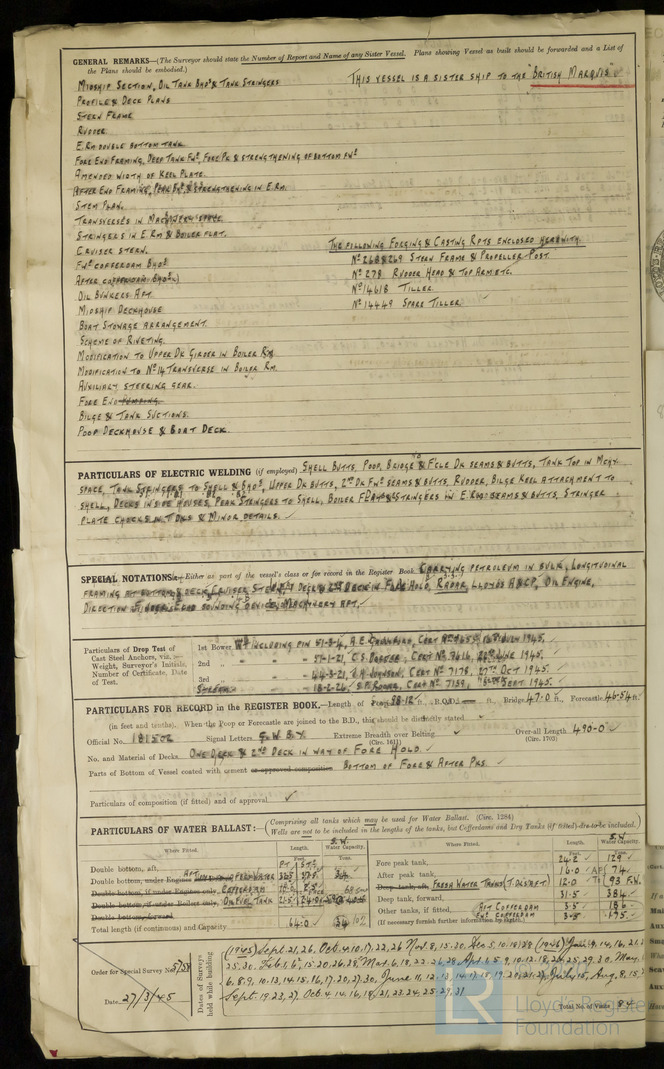 GENERAL REMARKS—(The Surveyor should state the Number of Report and Name of any Sister Vessel. Plans showing Vessel as built should be forwarded and a List of
the Plans should be embodied.)
MIDSHIP SECTION, OIL TANK BHDS & TANK STRINGERS
THIS VESSEL IS A SISTER SHIP TO THE "BRITISH MARQUIS"
PROFILE & DECK PLANS
STERN FRAME
RUDDER
E.RM DOUBLE BOTTOM TANK
FORE END FRAMING, DEEP TANK FWD, FORE PK & STRENGTHENING OF BOTTOM FWD
AMENDED WIDTH OF KEEL PLATE.
AFTER END FRAMING, PEAK & STRENGTHENING IN E.RM.
STEM PLAN.
TRANSVERSES IN MACHINERY SPACE
STRINGERS IN E.RM & BOILER FLAT.
CRUISER STERN.
THE FOLLOWING FORGING & CASTING RPTS ENCLOSED HEREWITH.
FWD COFFERDAM BHDS
Nº 268 & 269 STERN FRAME & PROPELLER POST.
AFTER COFFERDAM BHDS
Nº 278 RUDDER HEAD & TOP ARM ETC.
OIL BUNKERS AFT.
Nº 14618 TILLER.
MIDSHIP DECKHOUSE
Nº 14449 SPARE TILLER
BOAT STOWAGE ARRANGEMENT.
SCHEME OF RIVETING.
MODIFICATION TO UPPER DK GIRDER IN BOILER RM.
MODIFICATION TO Nº 14 TRANSVERSE IN BOILER RM.
AUXILIARY STEERING GEAR.
FORE END
BILGE & TANK SUCTIONS.
POOP DECKHOUSE & BOAT DECK.
PARTICULARS OF ELECTRIC WELDING (if employed) SHELL BUTTS, POOP, BRIDGE & F'CLE DK SEAMS & BUTTS, TANK TOP IN MCHY
SPACE, TANK STRINGERS TO SHELL & BHDS, UPPER DK BUTTS, 2ND DK FWD SEAMS & BUTTS, RUDDER, BILGE KEEL ATTACHMENT TO
SHELL, DECKS INSIDE HOUSES, PEAK STRINGERS TO SHELL, BOILER FLAT & STRINGERS IN E. SEAMS & BUTTS, STRINGER
PLATE CHOCKS & MINOR DETAILS.
SPECIAL NOTATIONS:—Either as part of the vessel's class or for record in the Register Book CARRYING PETROLEUM IN BULK, LONGITUDINAL
FRAMING AT BOTTOM & DECK, CRUISER STERN, 1 DECK & 2ND DECK IN FORE HOLD, RADAR, LLOYDS A&CP, OIL ENGINE,
DIRECTION FINDER, ECHO SOUNDING DEVICE, MACHINERY AFT.
Particulars of Drop Test of
Cast Steel Anchors, viz.:—
Weight, Surveyor's Initials,
Number of Certificate, Date
of Test.
1st Bower INCLUDING PIN A.E. JULY 1945.
2nd " C.S. CERT Nº 7416, JUNE 1945.
3rd " JOHNSON, CERT Nº 7178, 27TH OCT 1945.
STREAM CERT Nº 7159, SEPT. 1945.
PARTICULARS FOR RECORD in the REGISTER BOOK.—Length of Poop 98.12 ft., B.Q.D. ft., Bridge 47.0 ft., Forecastle 46.54 ft.
(in feet and tenths). When the Poop or Forecastle are joined to the B.D., this should be distinctly stated
Official No. 181502 Signal Letters G.W.B.Y. Extreme Breadth over Belting Over-all Length 490.0
(Circ. 1611) (Circ. 1703)
No. and Material of Decks ONE DECK & 2ND DECK IN WAY OF FORE HOLD.
Parts of Bottom of Vessel coated with cement or approved composition BOTTOM OF FORE & AFTER PKS.
Particulars of composition (if fitted) and of approval
PARTICULARS OF WATER BALLAST:—(Comprising all tanks which may be used for Water Ballast. (Circ. 1284)
(Wells are not to be included in the lengths of the tanks, but Cofferdams and Dry Tanks (if fitted) are to be included.)
Where Fitted. Length. Water Capacity. Where Fitted. Length. Water Capacity.
Feet. Tons. Feet. Tons.
Double bottom, aft,
Double bottom, under Engines
Double bottom, if under Engines only, COFFERDAM
Double bottom, if under Boilers only, OIL FUEL TANK
Double bottom, forward
Total length (if continuous) and Capacity 64.0
Fore peak tank, 24.2 129
After peak tank, 16.0 74
Deep tank, aft, FRESH WATER TANKS 12.0 93 F.W.
Deep tank, forward, 31.5 384
Other tanks, if fitted, AFT COFFERDAM 3.5 186
(If necessary furnish further information by sketch.) FWD COFFERDAM 3.5 175
Order for Special Survey No. 5/58
Date 27/3/45
Dates of Surveys held while building
(1945) Sept. 21, 26, Oct. 4, 10, 17, 22, 26 Nov. 8, 15, 30. Dec. 5, 10, 18, 28 (1946) Jan. 9, 14, 16, 21,
25, 30. Feb. 1, 6, 15, 20, 26, 28, Mar. 6, 18, 22, 26, 28 Apl. 1, 5, 9, 10, 12, 18, 24, 25, 29, 30. May 1,
6, 8, 9, 10, 13, 14, 15, 16, 17, 20, 27, 30, June 11, 12, 13, 14, 17, 19, 20, 21, 27, July 15, Aug. 8, 15,
Sept. 19, 23, 27, Oct. 4, 14, 16, 18, 21, 23, 24, 25, 29, 31
Total No. of Visits 84
LR
Lloyd's Register
Foundation